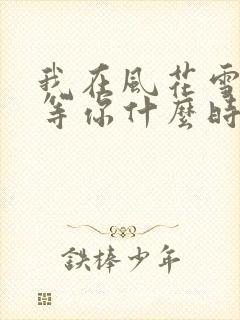 我在風花雪
等你什麼時
鉄棒少年